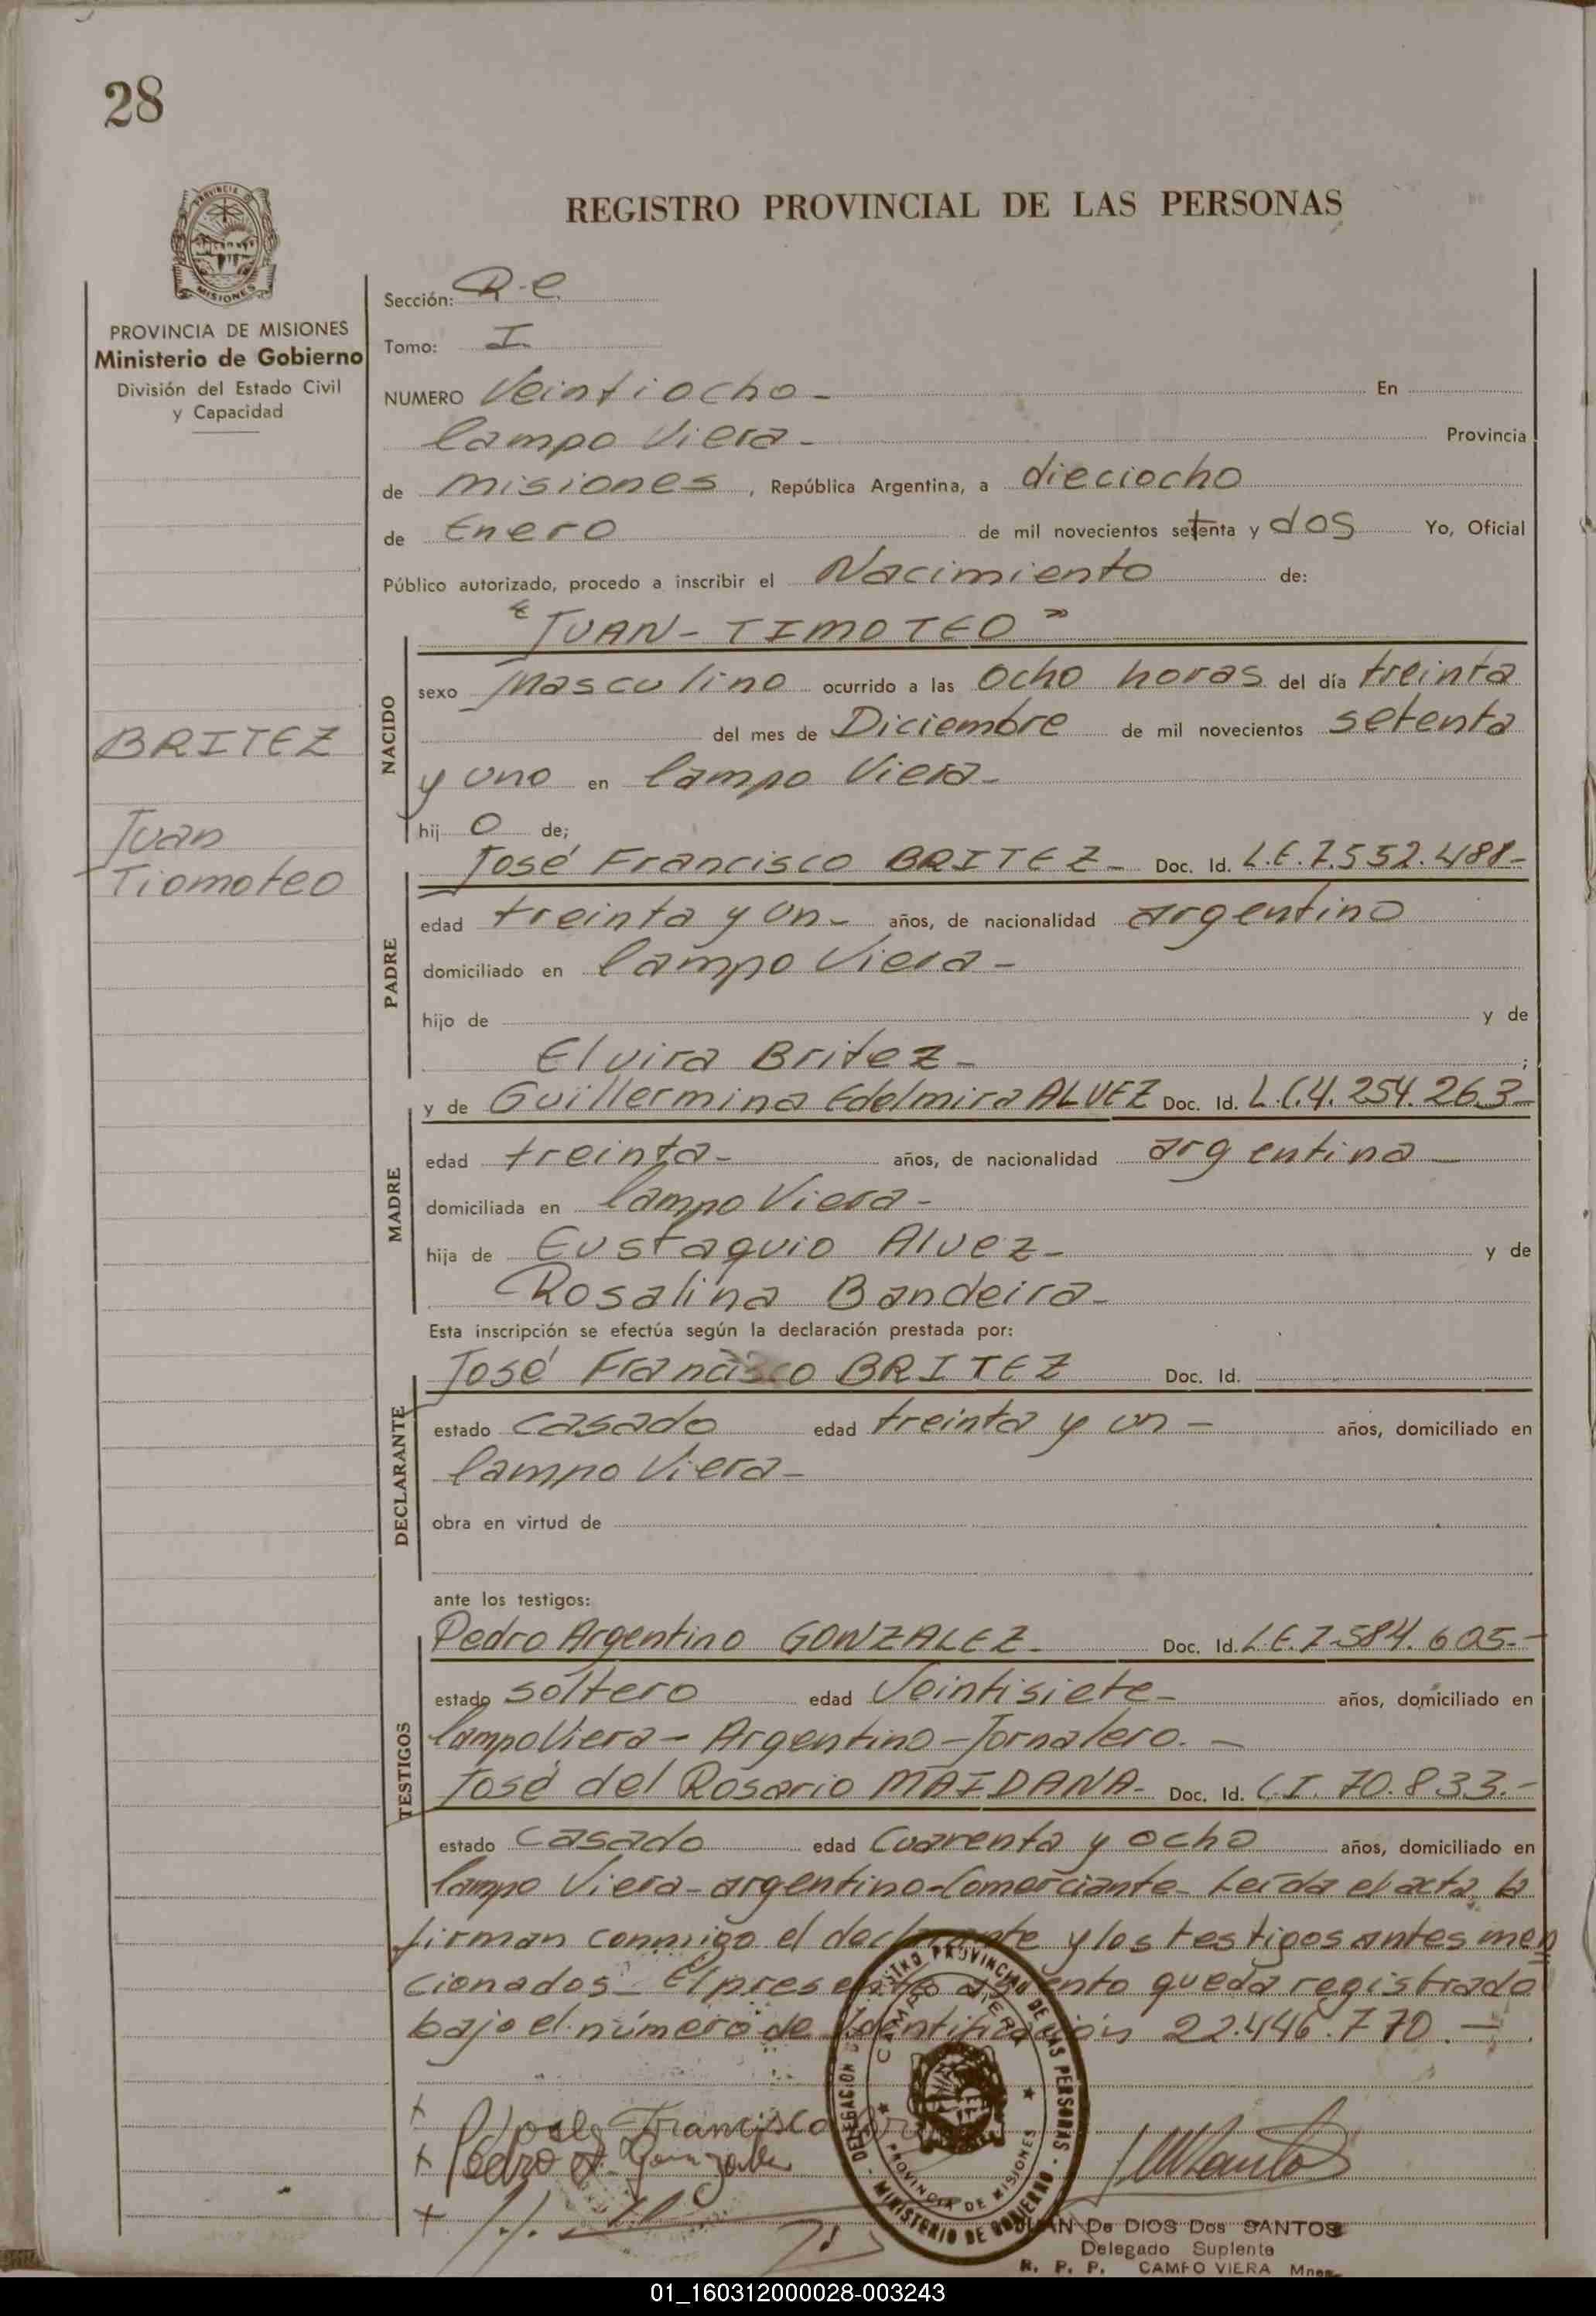 28
PROVINCIA
MISIONES
PROVINCIA DE MISIONES
Ministerio de Gobierno
División del Estado Civil
y Capacidad
BRITEZ
Juan
Tiomoteo
REGISTRO PROVINCIAL DE LAS PERSONAS
Sección: R.C.
Tomo: I.
NUMERO Veintiocho- En
Campo Viera- Provincia
de misiones, República Argentina, a dieciocho
de Enero de mil novecientos setenta y dos Yo, Oficial
Público autorizado, procedo a inscribir el Nacimiento de:
"JUAN-TIMOTEO"
NACIDO
sexo Masculino ocurrido a las ocho horas del día treinta
del mes de Diciembre de mil novecientos setenta
y uno en Campo Viera-
hij o de;
José Francisco BRITEZ- Doc. Id. L.E.7.552.488-
PADRE
edad treinta y un- años, de nacionalidad argentino
domiciliado en Campo Viera-
hijo de y de
Elvira Britez- ;
y de Guillermina Edelmira ALVEZ Doc. Id. L.C.4.254.263-
MADRE
edad treinta- años, de nacionalidad argentina-
domiciliada en Campo Viera-
hija de Eustaquio Alvez- y de
Rosalina Bandeira-
Esta inscripción se efectúa según la declaración prestada por:
José Francisco BRITEZ Doc. Id.
DECLARANTE
estado casado edad treinta y un- años, domiciliado en
Campo Viera-
obra en virtud de
ante los testigos:
Pedro Argentino GONZALEZ- Doc. Id. L.E.7.584.605.-
TESTIGOS
estado soltero edad Veintisiete- años, domiciliado en
Campo Viera- Argentino-Jornalero.-
José del Rosario MAIDANA- Doc. Id. C.I. 70.833.-
estado casado edad Cuarenta y ocho años, domiciliado en
Campo Viera-argentino-Comerciante- Leída el acta, la
firman conmigo el declarante y los testigos antes men
cionados- El presente asiento queda registrado
bajo el número de Identificación 22.446.770.-
DELEGACION REGISTRO PROVINCIAL DE LAS PERSONAS - MINISTERIO DE GOBIERNO -
CAMPO VIERA
PROVINCIA DE MISIONES
+ José Francisco
+ Pedro A. Gonzalez
+
JUAN De DIOS Dos SANTOS
Delegado Suplente
R. P. P. CAMPO VIERA Mnes.
01_160312000028-003243